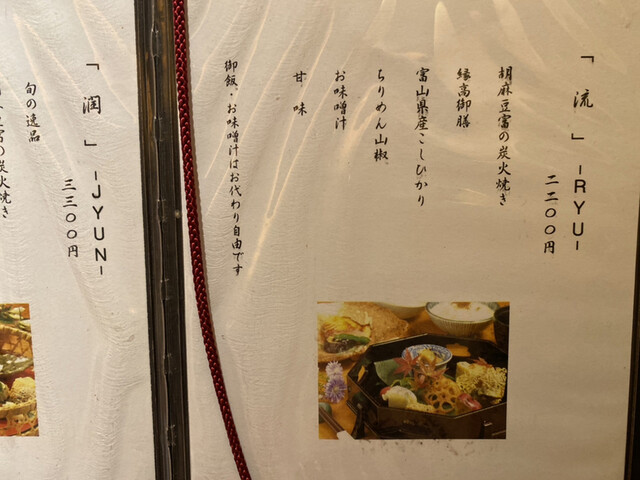 「流」-RYU-
二二〇〇円
胡麻豆富の炭火焼き
縁高御膳
富山県産こしひかり
ちりめん山椒
お味噌汁
甘味
御飯・お味噌汁はお代わり自由です
「潤」-JYUN-
三三〇〇円
旬の逸品
豆富の炭火焼き